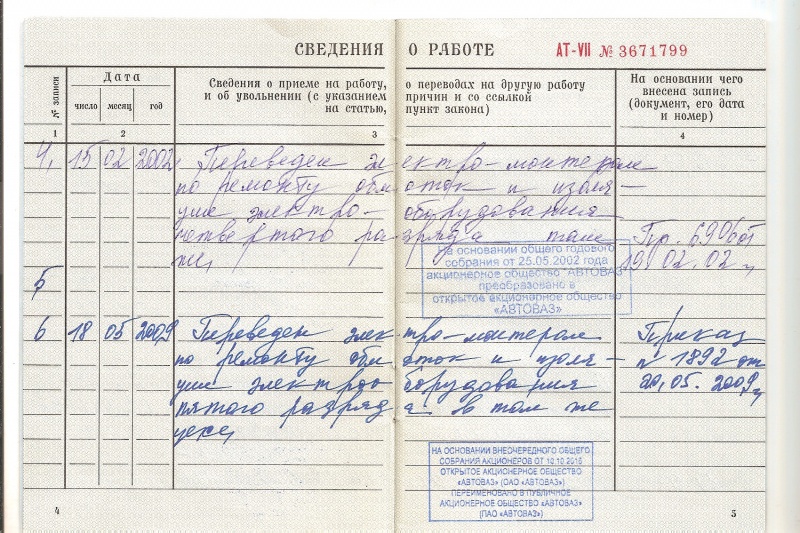 СВЕДЕНИЯ О РАБОТЕ АТ-VII № 3671799
№ записи
Дата
число месяц год
Сведения о приеме на работу, о переводах на другую работу
и об увольнении (с указанием причин и со ссылкой
на статью, пункт закона)
На основании чего
внесена запись
(документ, его дата
и номер)
1 2 3 4
4. 15 02 2002 Переведен электромонтером
по ремонту обмоток и изоля-
ции электро- оборудования
четвертого разряда там
же Пр. 6906 от
19.02.02 г.
На основании общего годового
собрания от 25.05.2002 года
акционерное общество "АВТОВАЗ"
преобразовано в
открытое акционерное общество
«АВТОВАЗ»
5
6 18 05 2009 Переведен электро-монтером
по ремонту обмоток и изоля-
ции электрооборудования
пятого разряда в том же
цехе
Приказ
№ 1892 от
20.05.2009 г.
НА ОСНОВАНИИ ВНЕОЧЕРЕДНОГО ОБЩЕГО
СОБРАНИЯ АКЦИОНЕРОВ ОТ 10.10.2016
ОТКРЫТОЕ АКЦИОНЕРНОЕ ОБЩЕСТВО
«АВТОВАЗ» (ОАО «АВТОВАЗ»)
ПЕРЕИМЕНОВАНО В ПУБЛИЧНОЕ
АКЦИОНЕРНОЕ ОБЩЕСТВО «АВТОВАЗ»
(ПАО «АВТОВАЗ»)
4 5